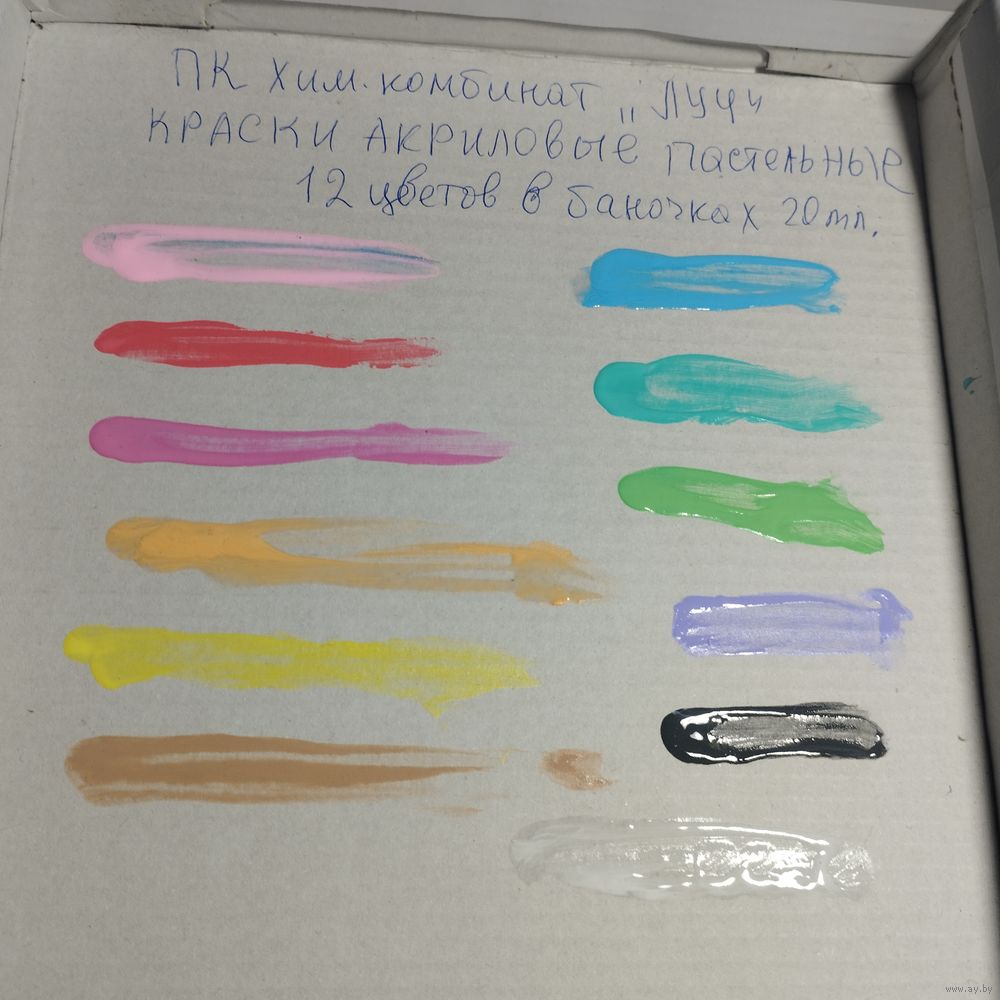 ПК Хим. комбинат „Луч"
КРАСКИ АКРИЛОВЫЕ пастельные
12 цветов в баночках 20 мл.
www.ay.by